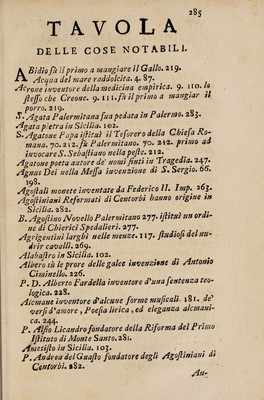 285
TAVOLA
DELLE COSE NOTABILI.
ABidio fù il primo a mangiare il Gallo. 219.
Acqua del mare raddolcita. 4. 87.
Acrone inventore della medicina empirica. 9. 110. lo
stesso che Creone. 9. 111. fù il primo a mangiar il
porro. 219.
S. Agata Palermitana sua pedata in Palermo. 283.
Agata pietra in Sicilia. 102.
S. Agatone Papa istituì il Tesorero della Chiesa Ro-
mana. 70. 212. fù Palermitano. 70. 212. primo ad
invocare S. Sebastiano nella peste. 212.
Agatone poeta autore de' nomi finti in Tragedia. 247.
Agnus Dei nella Messa invenzione di S. Sergio. 66.
198.
Agostali monete inventate da Federico II. Imp. 263.
Agostiniani Reformati di Centorbi hanno origine in
Sicilia. 282.
B. Agostino Novello Palermitano 277. istituì un ordi-
ne di Chierici Spedalieri. 277.
Agrigentini larghi nelle menze. 117. studiosi del nu-
drir cavalli. 269.
Alabastro in Sicilia. 102.
Albero sù le prore delle galee invenzione di Antonio
Ciminello. 226.
P. D. Alberto Fardella inventore d'una sentenza teo-
logica. 228.
Alcmane inventore d'alcune forme musicali. 181. de'
versi d'amore, Poesia lirica, ed eleganza alcmani-
ca. 244.
P. Alfio Licandro fondatore della Riforma del Primo
Istituto di Monte Santo. 281.
Ametisto in Sicilia. 103.
P. Andrea del Guasto fondatore degli Agostiniani di
Centorbi. 282.
An-